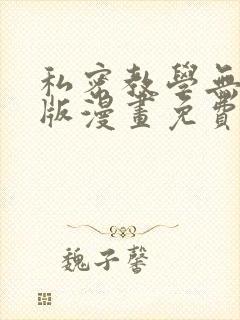 私密教學無
版漫畫免費
魏子馨